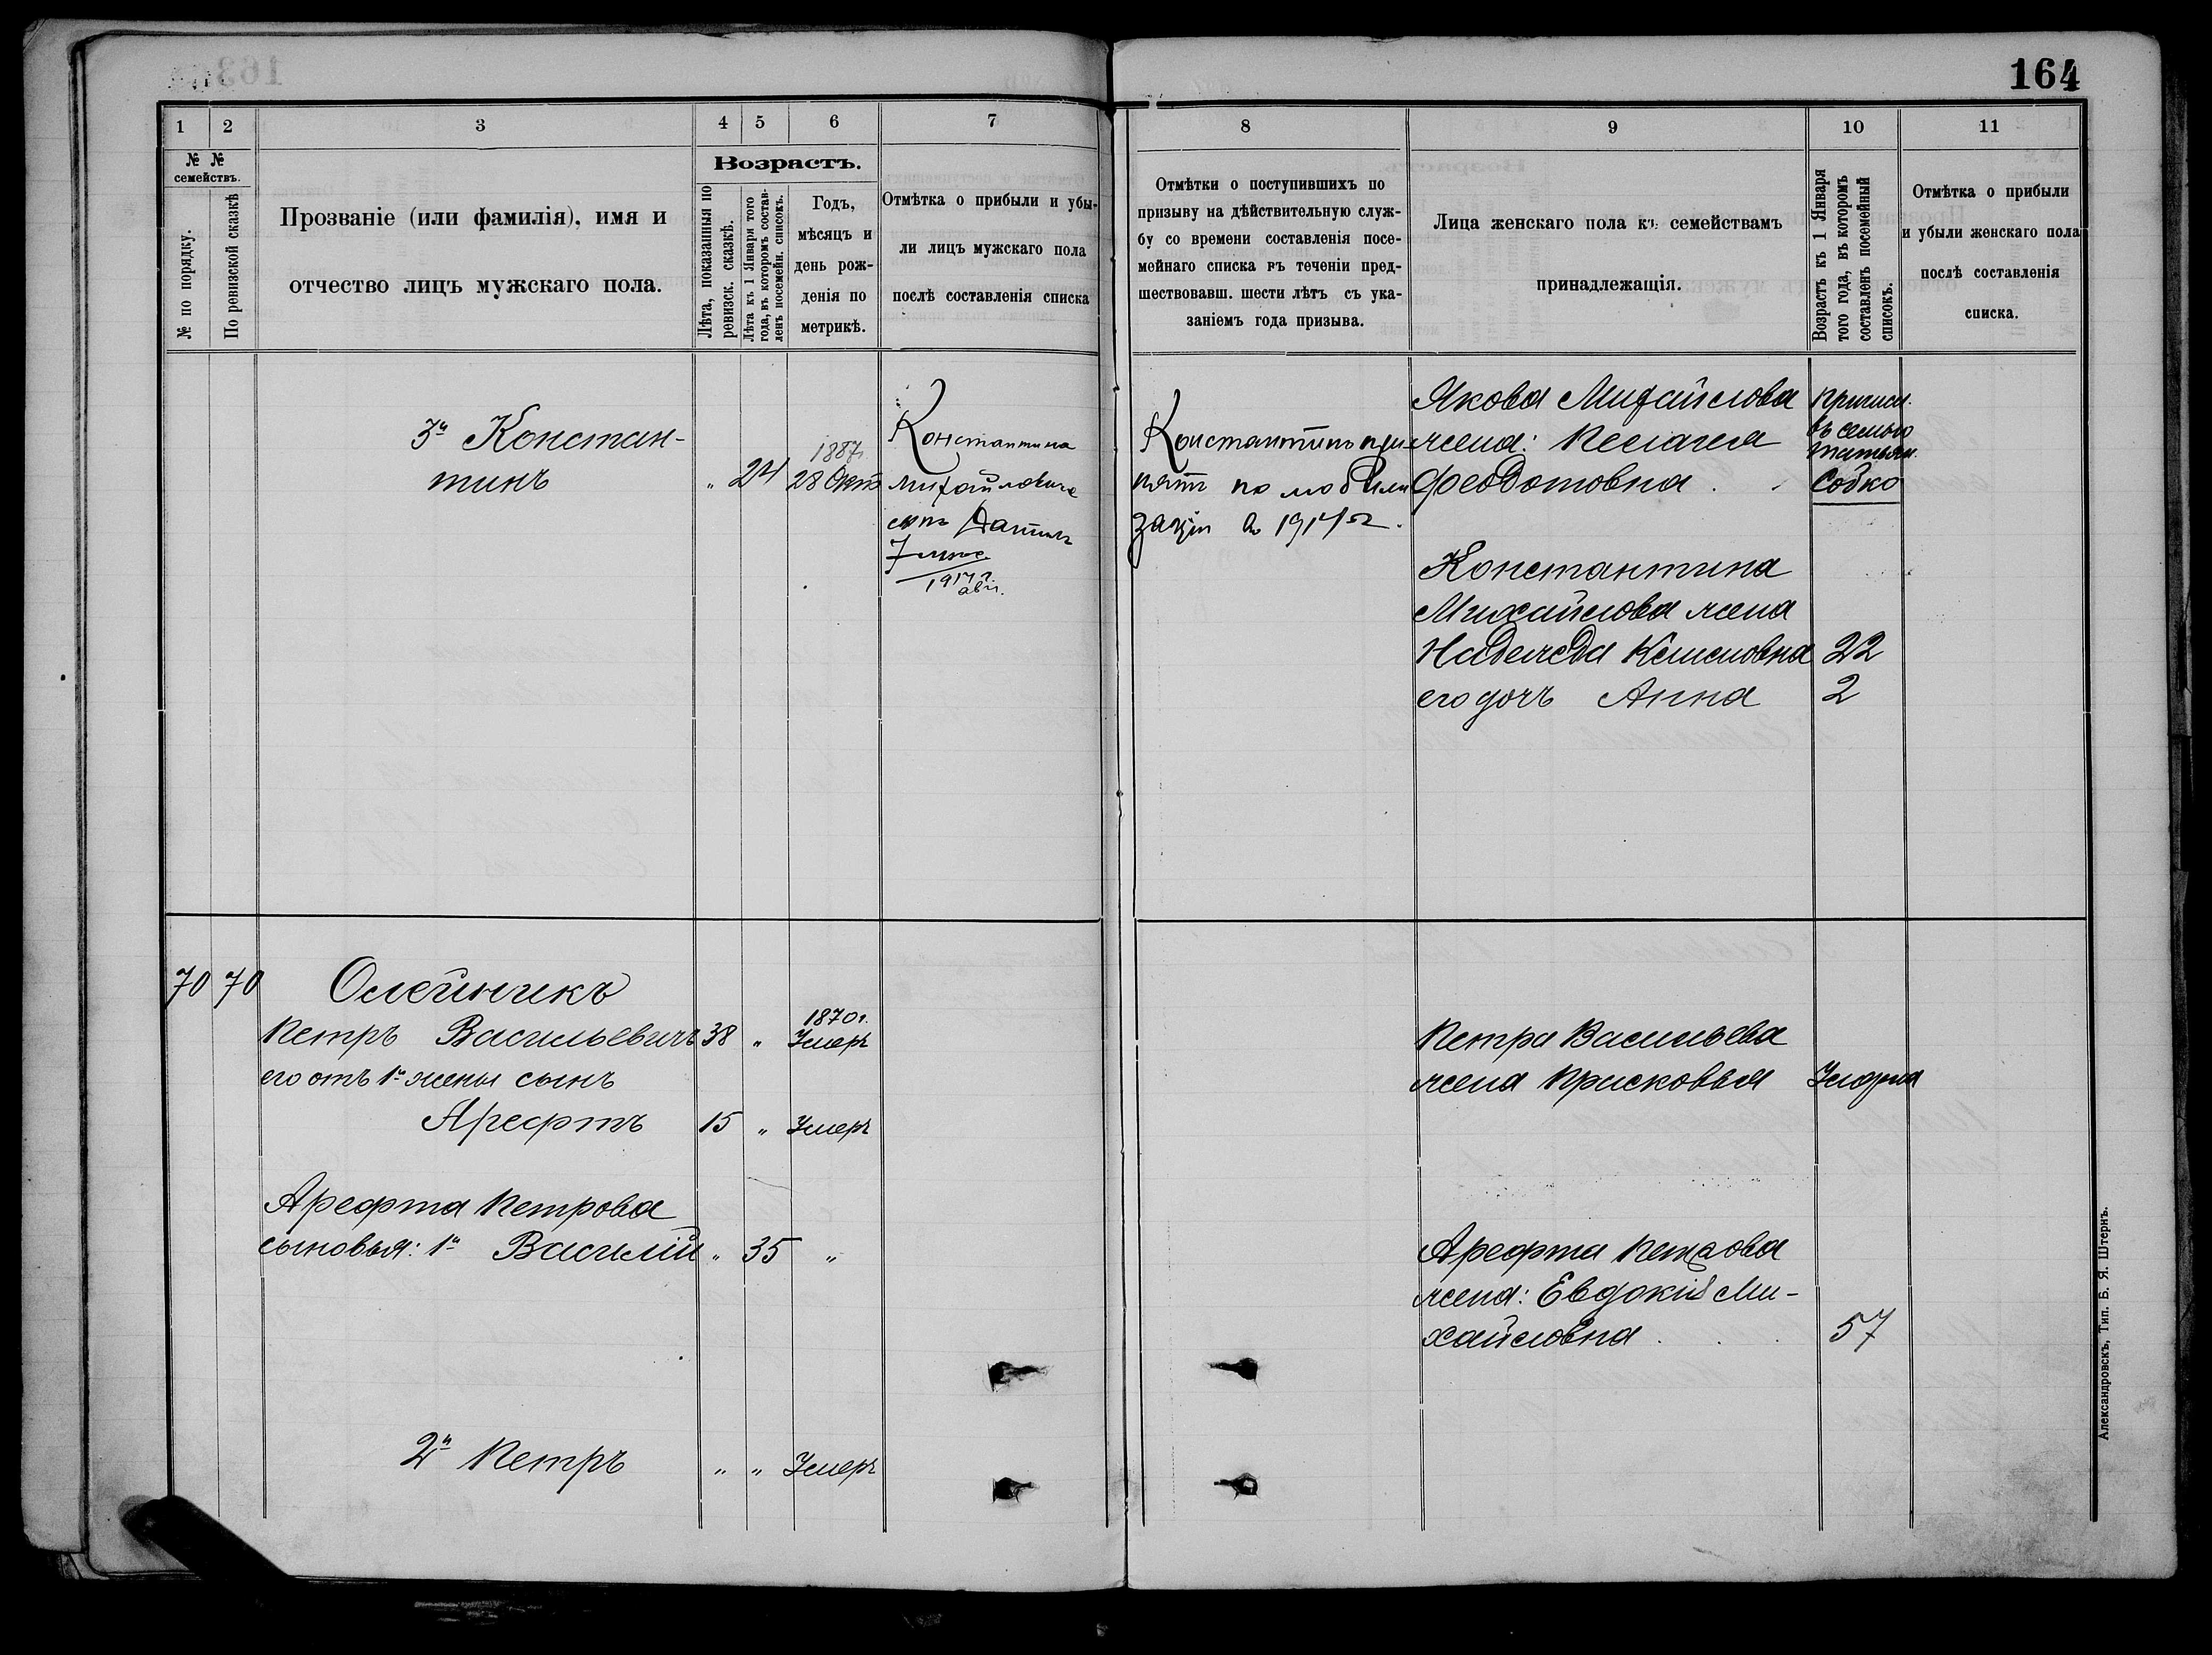 164
1
2
3
4
5
6
7
8
9
10
11
№ №
семействъ.
№ по порядку.
По ревизской сказкѣ
Прозваніе (или фамилія), имя и
отчество лицъ мужскаго пола.
Возрастъ.
Лѣта, показанныя по
ревизск. сказкѣ.
Лѣта къ 1 Января того
года, въ которомъ состав-
ленъ посемейн. списокъ.
Годъ,
мѣсяцъ и
день рож-
денія по
метрикѣ.
Отмѣтка о прибыли и убы-
ли лицъ мужскаго пола
послѣ составленія списка
Отмѣтки о поступившихъ по
призыву на дѣйствительную служ-
бу со времени составленія посе-
мейнаго списка въ теченіи пред-
шествовавш. шести лѣтъ съ ука-
заніемъ года призыва.
Лица женскаго пола къ семействамъ
принадлежащія.
Возрастъ къ 1 Января
того года, въ которомъ
составленъ посемейный
списокъ.
Отмѣтка о прибыли
и убыли женскаго пола
послѣ составленія
списка.
3й Констан-
тинъ
" 24
1887г.
28 Окт
Константина
Михайловича
сынъ
7
1917 г.
авг.
Константинъ при
нятъ по мобили
зацiи въ 1914 г.
Якова Михайлова
жена: Пелагея
Федотовна
Причисл.
въ семью
Татьян.
Собко
Константина
Михайлова жена
Надежда Клименовна 22
его дочь Анна 2
70 70 Олейникъ
Петръ Васильевичъ 38 "
1870г.
Умеръ
его отъ 1й жены сынъ
Арефтъ 15 " Умеръ
Арефта Петрова
сыновья: 1й Василій " 35 "
2й Петръ " " Умеръ
Петра Васильева
жена Прасковья
Арефта Петрова
жена: Евдокія Ми-
хайловна 57
Александровскъ, Тип. Б. Я. Штернъ.